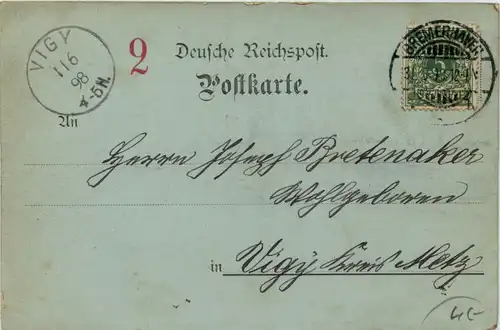 VIGY
11 6
98
4-5N.
2
Deutsche Reichspost.
Postkarte.
BREMERHAVEN
An
Herrn Joseph Bretenaker
Wohlgeboren
in Vigy Kreis Metz